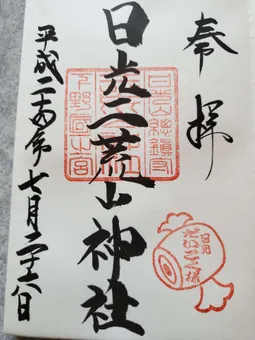 奉拝
日光二荒山神社
平成二十四年七月二十八日
日光総鎮守
下野国一宮
日光
だいこく様